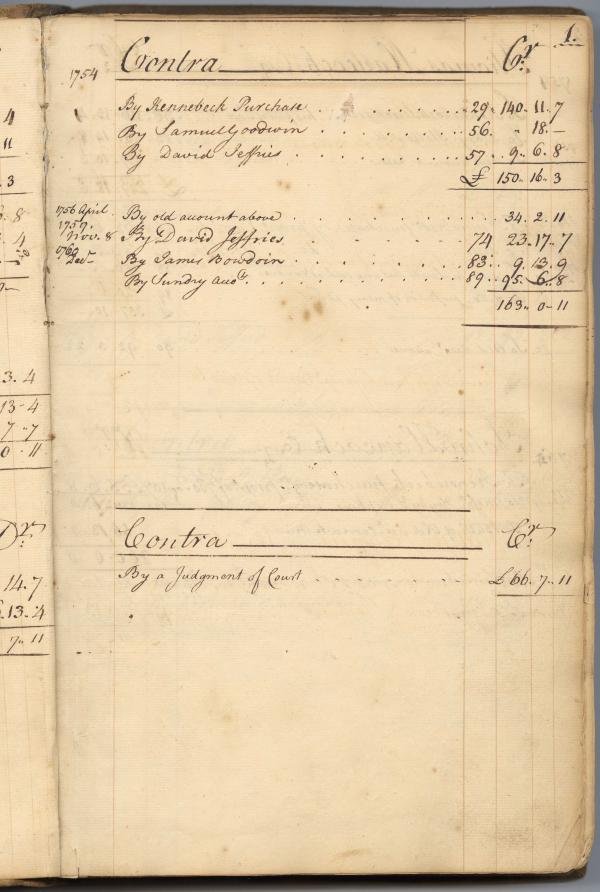 4
11
3
. 8
. 4
3. 4
13 - 4
7 " 7
0 . 11
Dr.
14. 7
. 13. 4
7 " 11
1.
1754 Contra Cr.
By Kennebeck Purchase . . . . . . . 29 " 140 " 11 " 7
By Samuel Goodwin . . . . . . . 56. " 18. —
By David Jeffries . . . . . . . 57 .. 9 .. 6 .. 8
£ 150 .. 16 .. 3
1756 April By old account above . . . . . . . 34 . 2 . 11
1757.
Nov. 8 By David Jeffries . . . . . . . 74 23 .. 17 .. 7
1760
Decr. By James Bowdoin . . . . . . . 83 .. 9 . 13 .. 9
By Sundry Accts. . . . . . . . 89 .. 95 .. 6 .. 8
163 .. 0 - 11
Contra Cr.
By a Judgment of Court . . . . . . . £ 66 .. 7 .. 11